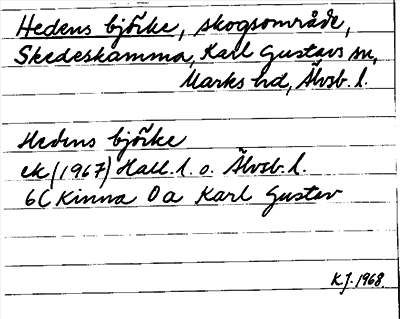 Hedens björke, skogsområde,
Skedeskamma, Karl Gustavs sn,
Marks hd, Älvsb. l.
Hedens björke
ek (1967) Hall. l. o. Älvsb. l.
6C Kinna 0a Karl Gustav
K.J. 1968